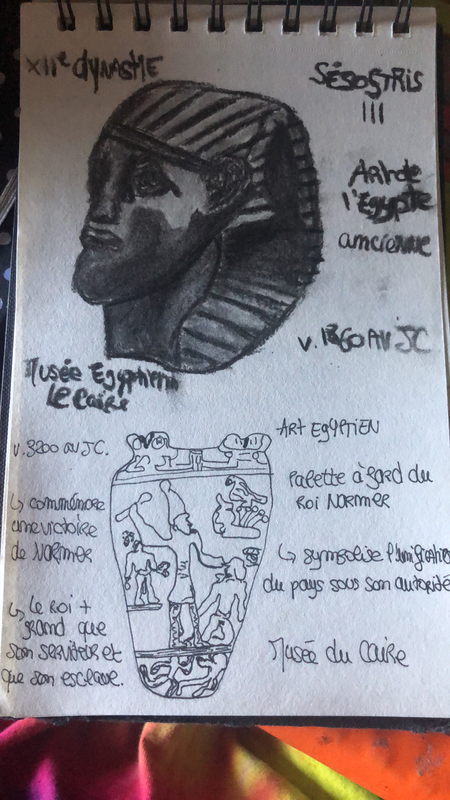 XIIe DYNASTIE
SÉSOSTRIS
III
Art de
l'Egypte
ancienne
v. 1860 AV JC
Musée Egyptien
LE Caire
v. 3200 av JC.
ART EgYPTIEN
Palette à fard du
Roi NARMER
↳ commémore
une victoire
de NARMER
↳ symbolise l'unification
du pays sous son autorité
↳ Le Roi +
grand que
son serviteur et
que son esclave.
Musée du Caire